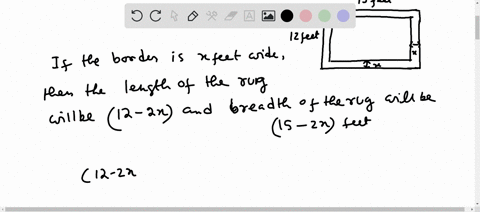 15 feet
12 feet
x
If the border is x feet wide,
Ix
then the length of the rug
will be (12-2x) and breadth of the rug will be
(15-2x) feet
(12-2x